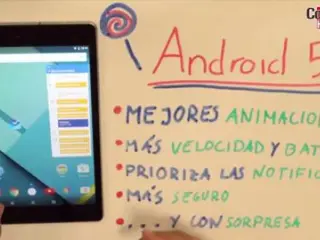 Android 5
• MEJORES ANIMACION
• MÁS VELOCIDAD Y BAT
• PRIORIZA LAS NOTIFIC
• MÁS SEGURO
• . . . Y CON SORPRESA